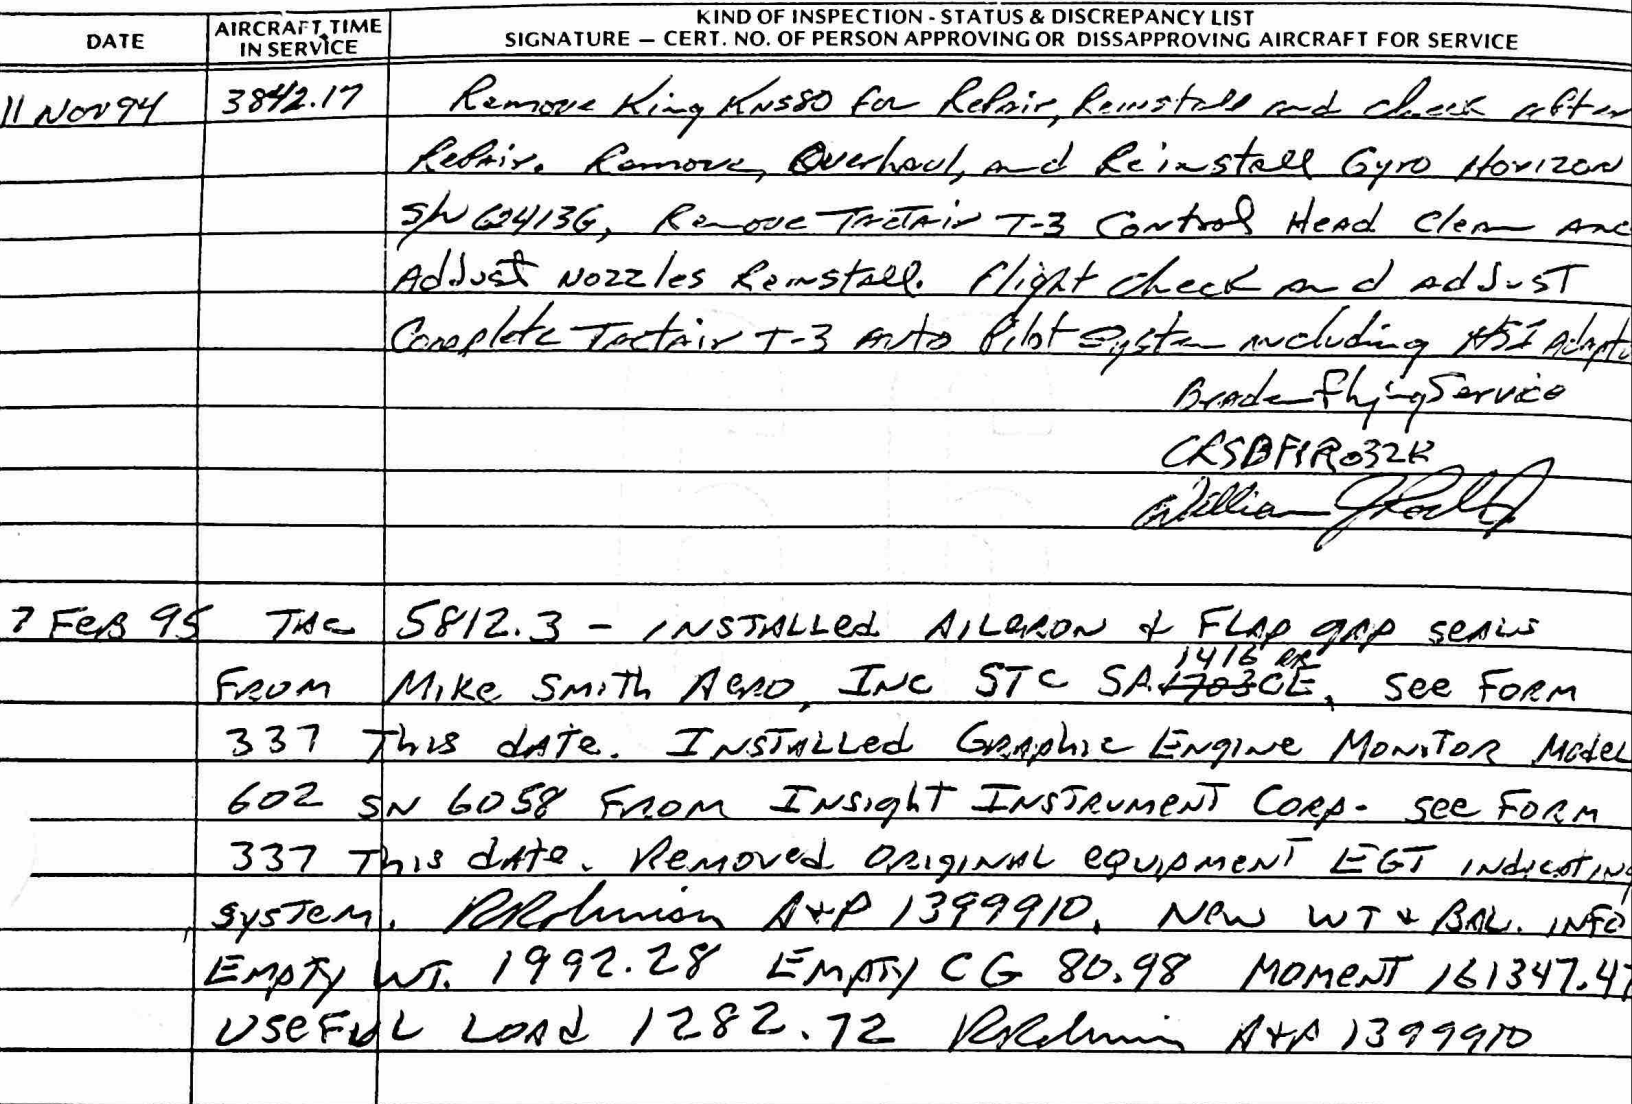 DATE
AIRCRAFT TIME
IN SERVICE
KIND OF INSPECTION - STATUS & DISCREPANCY LIST
SIGNATURE — CERT. NO. OF PERSON APPROVING OR DISSAPPROVING AIRCRAFT FOR SERVICE
11 Nov 94 3842.17 Remove King KNS80 for Repair, Reinstall and check after
Repair. Remove, Overhaul, and Reinstall Gyro Horizon
S/N G2413G, Remove Tactair T-3 Control Head Clean and
Adjust Nozzles Reinstall. Flight check and adjust
Complete Tactair T-3 Auto Pilot System including HSI Adapt
Braden Flying Service
CRSBF1R032K
William J
7 Feb 95 TAC 5812.3 - INSTALLED AILERON & FLAP gap seals
1416 RR
FROM Mike Smith Aero, INC STC SA1703CE, see FORM
337 This date. INSTALLED Graphic ENGINE MONITOR Model
602 SN 6058 FROM INSight INSTRUMENT Corp. see FORM
337 This date. Removed ORIGINAL equipmENT EGT INdicatING
system. RRobinson A&P 1399910. New WT & BAL. INFO
EMPTY WT. 1992.28 EMPTY CG 80.98 MOMENT 161347.47
USEFUL LOAD 1282.72 RRobinson A&P 1399910